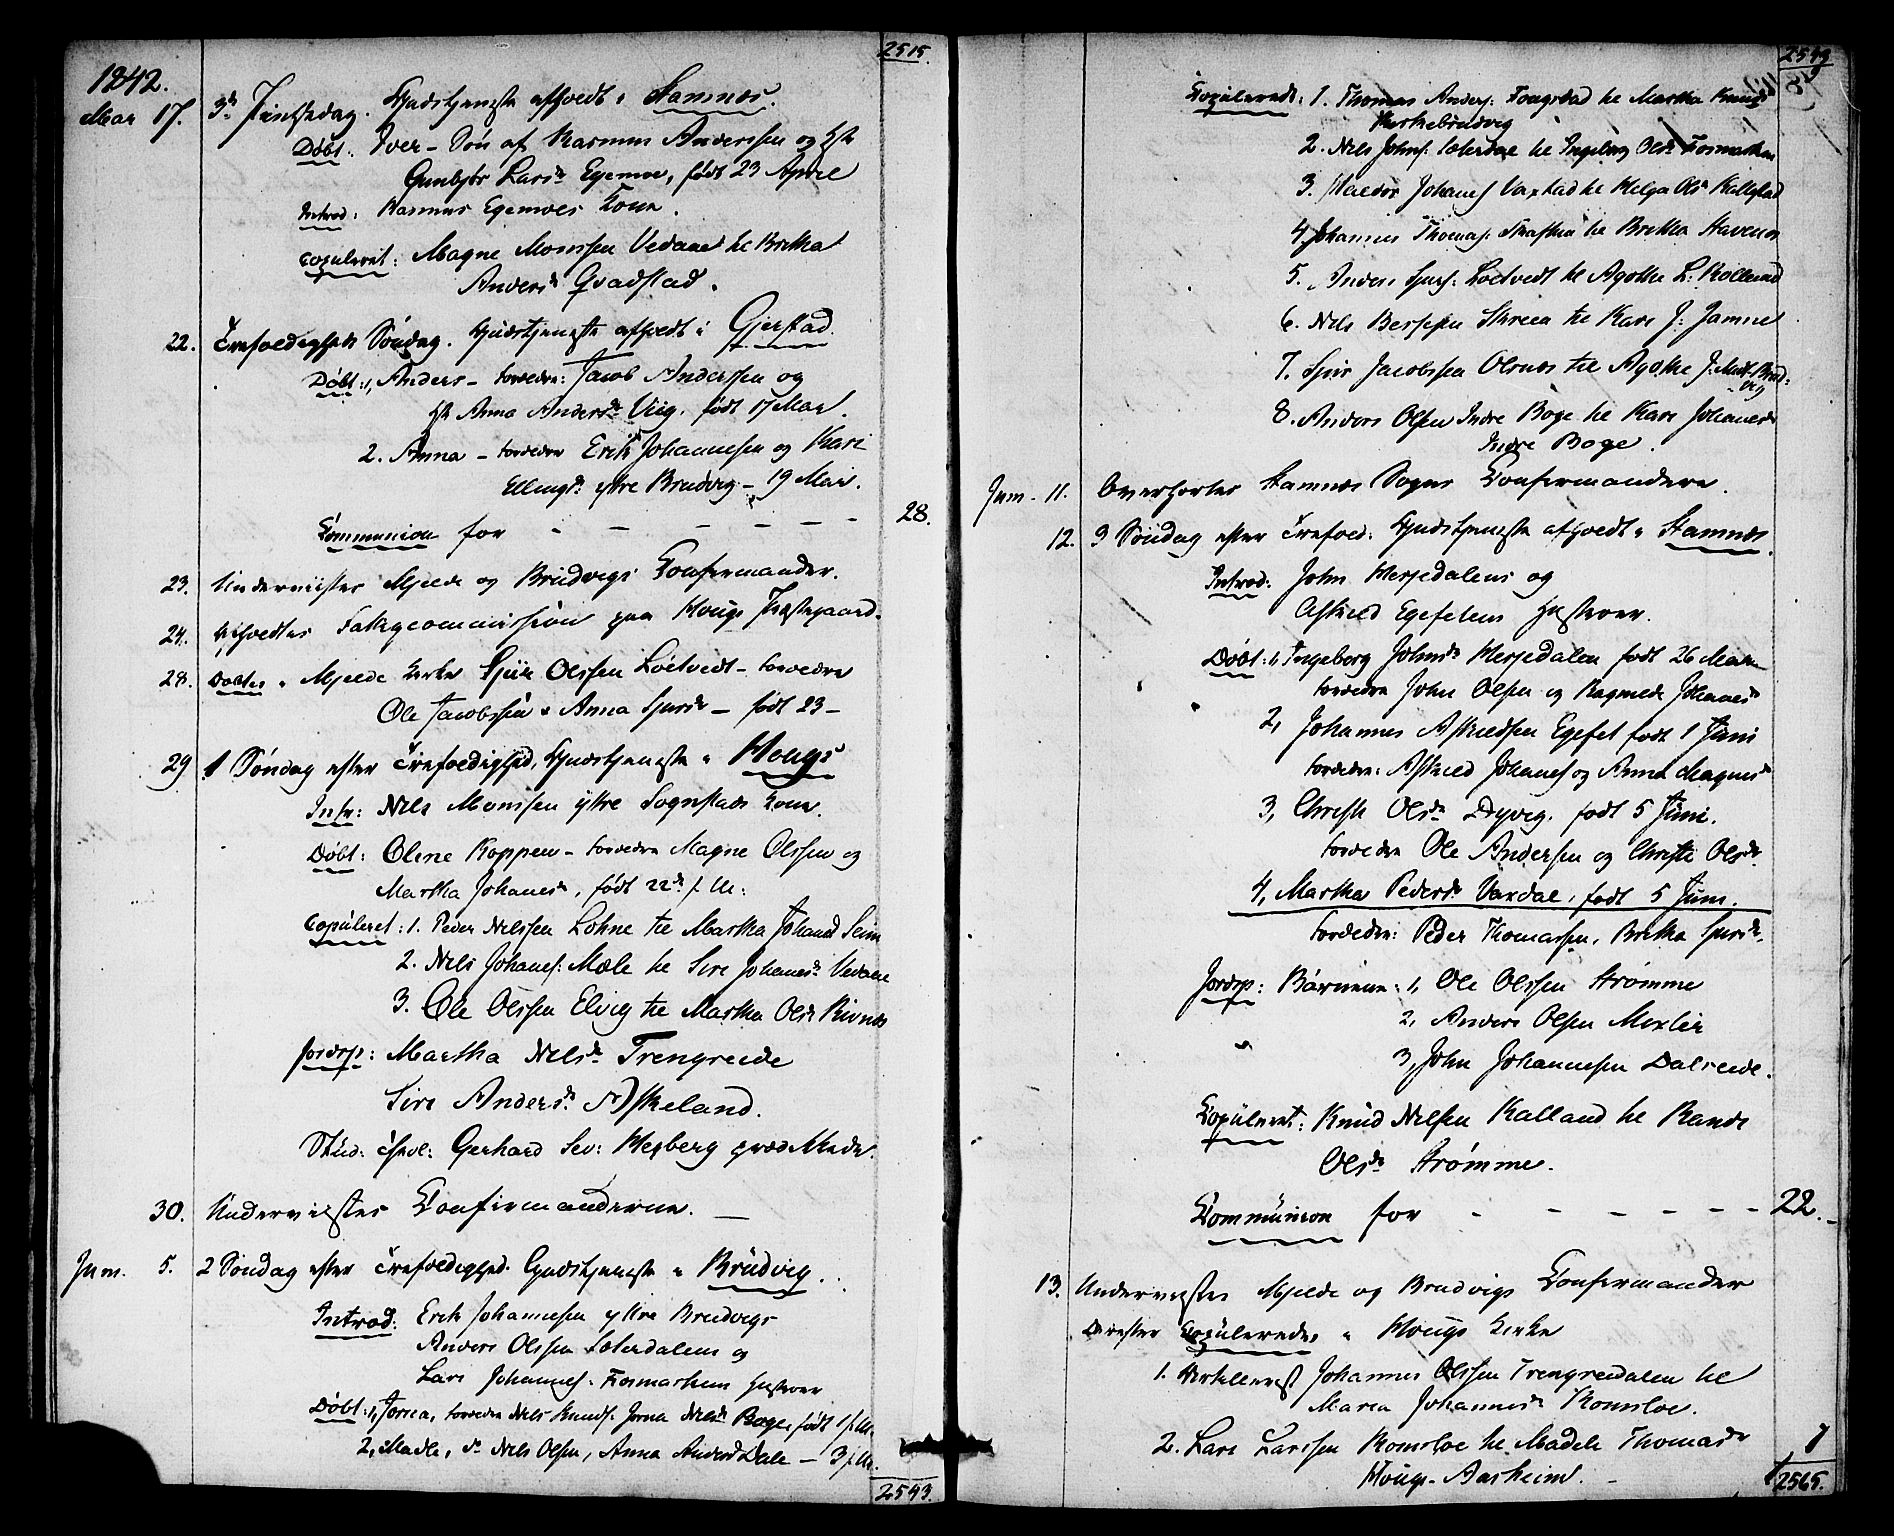 2515.
1842.
Mai 17. 3d Pintsedag. Gudstjeneste afholdt i Stamnes.
Døbt: Iver - Søn af Rasmus Anderssen og Hst
Gunbjør Larsdr Egemoe, født 23 April
Introd: Rasmus Egemoes Kone.
Copuleret: Magne Monssen Vedaae til Britha
Andersdr Qvadstad.
22. Trefoldigheds Søndag. Gudstjeneste afholdt i Gjerstad.
Døbt: 1, Anders - Forældre: Jacob Anderssen og
Hst Anna Andersdr Viig. født 17 Mai.
2. Anna - Forældre Erik Johannesen og Kari
Ellingsdr ytre Brudvig - 19 Mai.
Communion for - - - - - - 28.
23. Underviistes Mjelde og Brudvigs Confirmander.
24. Afholdtes Fattigcommission paa Hougs Præstegaard.
28. Døbtes i Mjelde Kirke Sjur Olssen Loetvedt - Forældre
Ole Jacobssen & Anna Sjursdr - født 23 -
29. 1 Søndag efter Trefoldighed. Gudstjeneste i Hougs
Intr: Nils Monssen ytre Sognstads Kone.
Døbt: Oline Koppen - Forældre Magne Olssen og
Martha Johanesdr, født 22d f. M:
Copuleret: 1. Peder Nilssen Lohne til Martha Johanesd Seim
2. Nils Johanes: Mæle til Siri Johanesdr Vedaae
3. Ole Olssen Elvig til Martha Olsdr Rivnæs
Jordsp: Martha Nilsdr Trengreide
Siri Andersdr Askeland.
Stud: theol: Gerhard Sev: Heyberg præd
30. Underviistes Confirmanderne. -
Juni. 5. 2 Søndag efter Trefoldighed. Gudstjeneste i Brudvig.
Introd: Erik Johannesen ytre Brudvigs
Anders Olssen Sæterdalens og
Lars Johannes. Fosmarkens Hustruer
Døbt: 1, Jorna, Forældre Nils Knuds. Jorna Nilsdr Boge, født 1 f. M.
2, Madle, do Nils Olsen, Anna Andersd Dale - 3 f. M.
2543.
2543
Copulerede: 1. Thomas Anders: Fougstad til Martha Knudsd
Kirkebrudvig
2. Nils Johns: Sæterdal til Ingeborg Olsdr Fosmarken
3. Haldor Johanes Vaxdal til Helga Olsdr Kallestad
4. Johannes Thomas: til Britha Stavenes
5. Anders Sjurs: Loetvedt til Agathe L: Rolland
6. Nils Berssen Skreen til Kari J: Jamne
7. Sjur Jacobssen Olsnæs til Agathe J: Brud-
vig
8. Anders Olsen Indre Boge til Kari Johanesdr
Indre Boge.
Juni. 11. Overhørtes Stamnæs Sogns Confirmandere.
12. 3 Søndag efter Trefold: Gudstjeneste afholdt i Stamnes.
Introd: John Herjedalens og
Astued Egefetens Hustruer.
Døbt: 1, Ingeborg Johnsdr Herjedalen født 26 Mai
Forældre John Olsen og Ragnilde Johanesdr
2, Johannes Astuedsen Egefet født 1 Juni
Forældre: Astued Johanes og Anna Magnesdr
3, Christi Olsdr Dyvig. født 5 Juni.
Forældre Ole Andersen og Christi Olsdr.
4, Martha Pedersdr Vaxdal, født 5 Juni.
Forældre: Peder Thomassen, Britha Sjursdr.
Jordsp: Børnene: 1, Ole Olssen Strømme
2, Anders Olsen Mixlir
3, John Johannesen Dalseide.
Copuleret: Knud Nilsen Kalland til Randi
Olsdr Strømme.
Communion for - - - - - - 22.
13. Underviistes Mjelde og Brudvigs Confirmander
Derefter Copuleredes i Hougs Kirke
1. Johannes Olssen Trengreidalen til
Maria Johannesdr Romsloe.
2. Lars Larssen Romsloe til Madele Thomasdr
Hougs-Aarheim. -
2565.